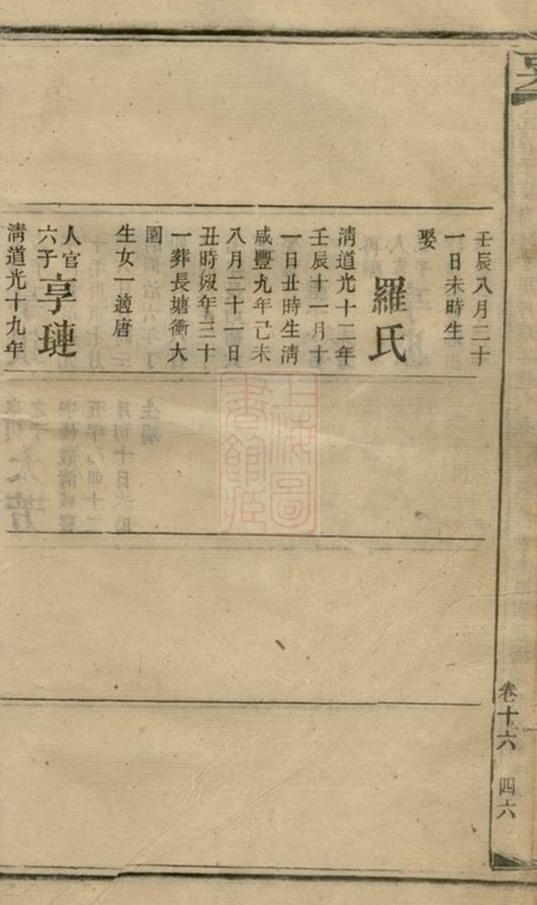 壬辰八月二十
一日未時生
娶
羅氏
清道光十二年
壬辰十一月十
一日丑時生淸
咸豐九年己未
八月二十一日
丑時歿年三十
一葬長塘衝大
園
生女一適唐
人官
六子
享璉
淸道光十九年
卷十六
四六
上海圖
書館藏